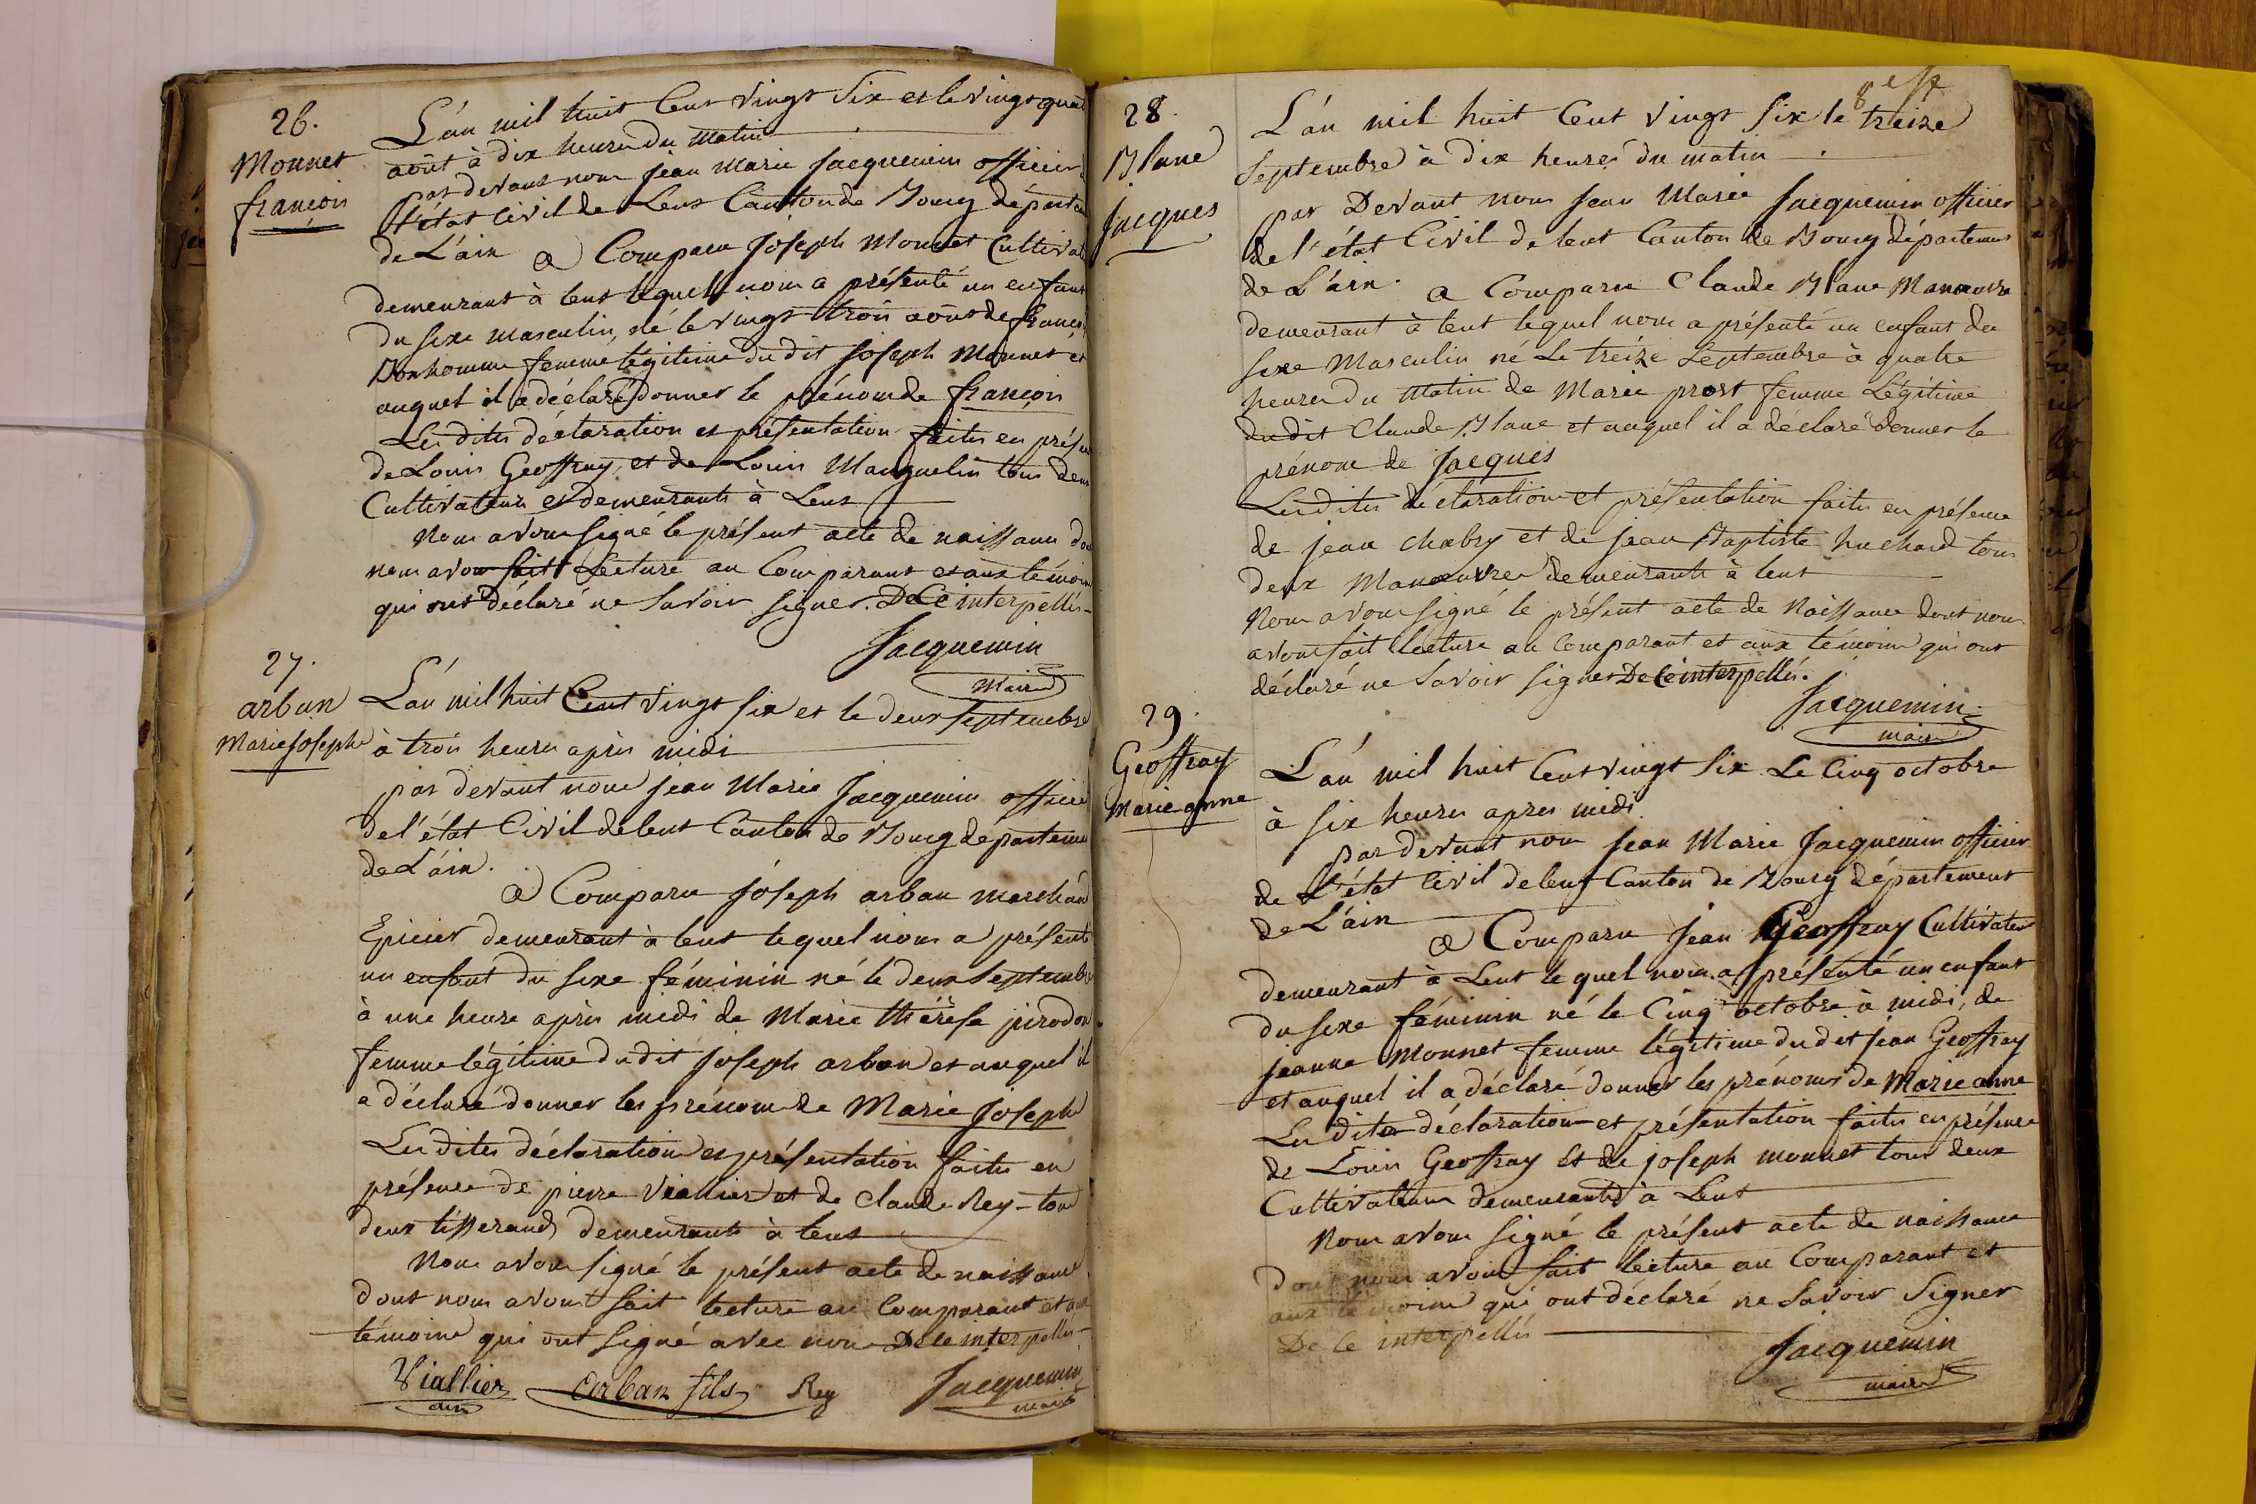 26.
Monnet
françois
L'án mil huit Cent vingt Six et le vingt quat
août à dix heures du matin
par devant nous jean marie Jacquemin officier
de l'état Civil de Lent Canton de Bourg départem
de L'áin a Comparu Joseph Monnet Cultivat
demeurant à lent lequel nous a présenté un enfant
du sexe masculin, né le vingt trois août de
Bonhomme femme légitime du dit Joseph Monnet et
auquel il a déclaré donner le prénom de françois
Les dites déclaration et présentation faites en prése
de Louis Geoffray, et de Louis Manguelin tous deux
Cultivateurs et demeurants à Lent
Nous avons signé le présent acte de naissance do
nous avons fait Lecture au Comparant et aux témoins
qui ont déclaré ne Savoir signer. De Ce interpellés
Jacquemin
maire
27.
arban
Marie Josephe
L'án mil huit Cent vingt six et le deux septembre
à trois heures après midi
par devant nous jean Marie Jacquemin officier
de l'état Civil de lent Canton de Bourg departemen
de L'áin.
a Comparu Joseph arban marchand
Epicier demeurant à lent lequel nous a présenté
un enfant du sexe féminin né le deux septembre
à une heure après midi de Marie thérèse jirodon
femme légitime du dit Joseph arban et auquel il
a déclaré donner les prénoms de Marie Josephe
Les dites déclaration et présentation faites en
présence de pierre Viallier et de Claude Rey - tous
deux tisserands demeurants à lent
Nous avons signé le présent acte de naissance
dont nous avons fait lecture au Comparant et aux
témoins qui ont signé avec nous De ce interpellés
Viallier Arban fils Rey Jacquemin
maire
28.
Blanc
Jacques
L'án mil huit Cent vingt Six le treize
Septembre à dix heures du matin
par Devant nous Jean Marie Jacquemin officier
de l'état Civil de lent Canton de Bourg départemen
de L'áin. a Comparu Claude Blanc Manœuvre
demeurant à lent lequel nous a présenté un enfant du
sexe Masculin né Le treize Septembre à quatre
heures Du Matin de Marie prost femme Légitime
du dit Claude Blanc et auquel il a déclaré donner le
prénom de Jacques
Les dites déclaration et présentation faites en présence
de jean chabry et de jean Baptiste huchard tous
deux Manœuvres demeurants à lent
Nous avons signé le présent acte de Naissance dont nous
avons fait lecture au Comparant et aux témoins qui ont
déclaré ne Savoir signer De Ce interpellés.
Jacquemin
maire
29.
Geoffray
marie anne
L'án mil huit Cent vingt Six Le Cinq octobre
à six heures apres midi
par devant nous Jean Marie Jacquemin officier
de L'état Civil de lent Canton de Bourg département
de L'áin
a Comparu Jean Geoffray Cultivateur
demeurant à Lent lequel nous a présenté un enfant
du sexe féminin né le Cinq octobre à midi, de
Jeanne Monnet femme légitime du dit jean Geoffray
et auquel il a déclaré donner les prénoms de Marie anne
Les dites déclaration et présentation faites en présence
de Louis Geoffray Et de joseph monnet tous deux
Cultivateurs demeurants à Lent
Nous avons signé le présent acte de naissance
dont nous avons fait lecture au Comparant et
aux témoins qui ont déclaré ne Savoir Signer
De Ce interpellés
Jacquemin
maire